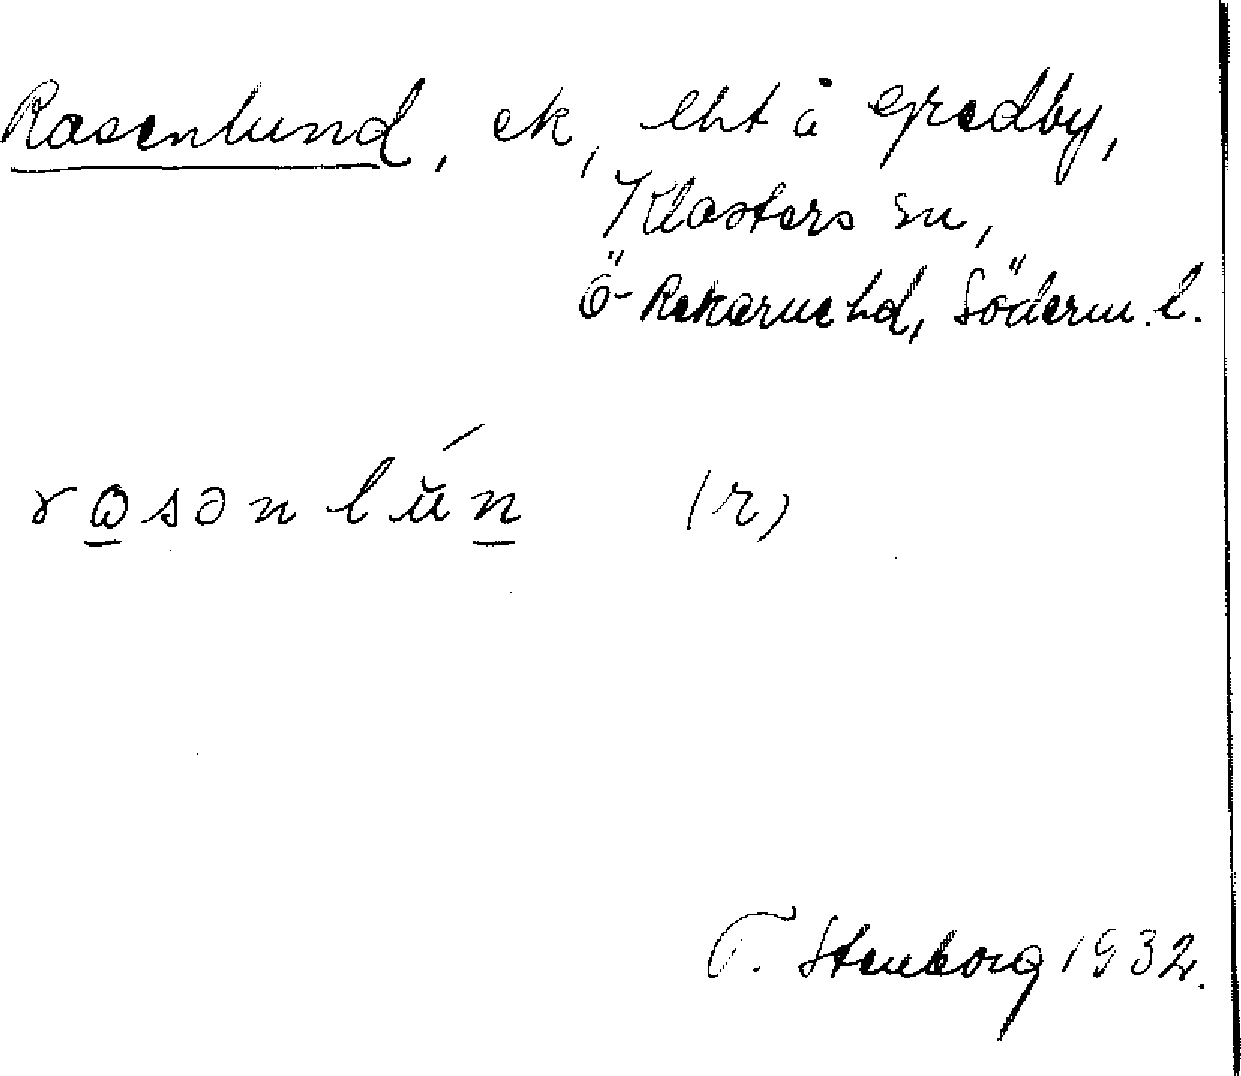 Rosenlund, ek, lht å Gredby,
Klosters sn,
Ö-Rekarne hd, Söderm. l.
rosənlún (r)
T. Stenborg 1932.